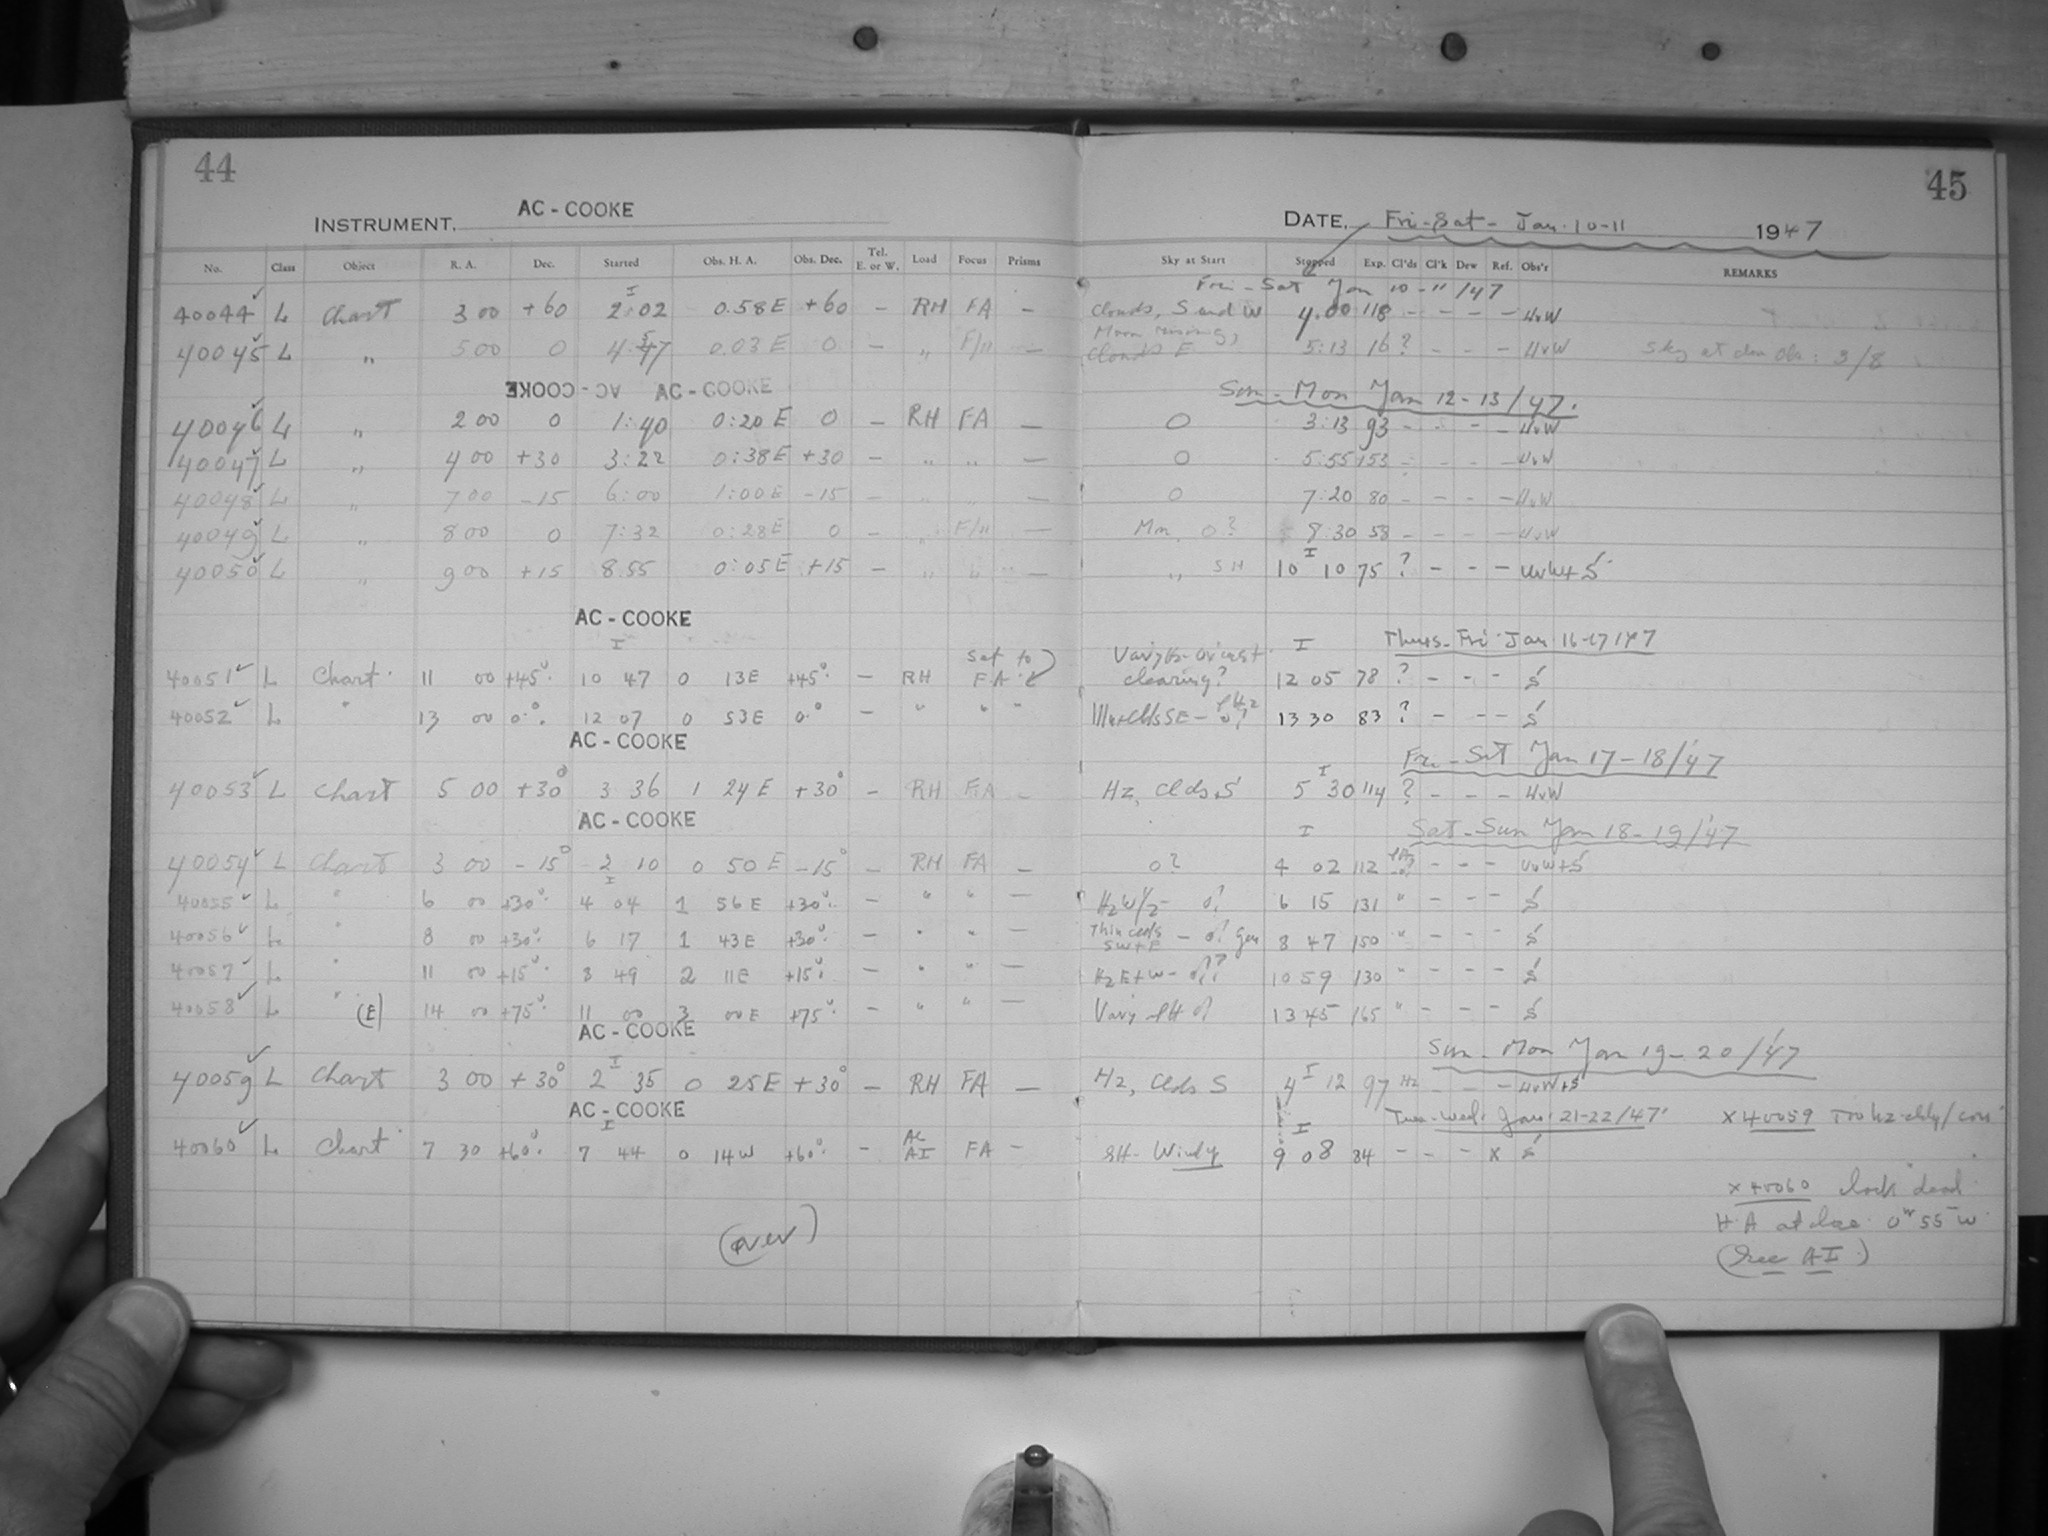 44
45
INSTRUMENT. AC - COOKE
DATE, Fri-Sat - Jan. 10-11 1947
No. Class Object R. A. Dec. Started Obs. H. A. Obs. Dec. Tel. E. or W. Load Focus Prisms Sky at Start Stopped Exp. Cl'ds Cl'k Dew Ref. Obs'r REMARKS
Fri - Sat Jan 10 - 11 /47
40044 L Chart 3 00 +60 2:02 0.58 E +60 - RH FA - Clouds, S and W 4.00 118 - - - - HvW
40045 L " 5 00 0 0.03 E 0 - " F/11 - Moon rising, Clouds E 5:13 16 ? - - - HvW Sky at 3/8
AC - COOKE AC - COOKE
Sun - Mon Jan 12 - 13/47.
40046 L " 2 00 0 1:40 0:20 E 0 - RH FA - O 3:13 93 - - - - HvW
40047 L " 4 00 +30 3:22 0:38E +30 - " " - O 5:55 153 - - - - HvW
40048 L " 7 00 -15 6:00 1:00 E -15 - " " - O 7:20 80 - - - - HvW
40049 L " 8 00 0 7:32 0:28E 0 - " F/11 - Mn, O? 8:30 58 - - - - HvW
40050 L " 9 00 +15 8.55 0:05 E +15 - " " - " SH 10 10 75 ? - - - HvW + S
AC - COOKE
Thurs - Fri - Jan 16-17/47
40051 L Chart 11 00 +45° 10 47 0 13E +45° - RH set to FA clearing? 12 05 78 ? - - - S
40052 L " 13 00 0° 12 07 0 53E 0° - " " " 13 30 83 ? - - - S
AC - COOKE
Fri - Sat Jan 17 - 18/47
40053 L Chart 5 00 +30° 3 36 1 24 E +30° - RH FA - Hz, Clds S 5 30 114 ? - - - HvW
AC - COOKE
Sat - Sun Jan 18 - 19/47
40054 L Chart 3 00 -15° 2 10 0 50 E -15° - RH FA - O? 4 02 112 - - - HvW + S
40055 L " 6 00 +30° 4 04 1 56 E +30° - " " - Hz W/2 - O? 6 15 131 " - - - S
40056 L " 8 00 +30° 6 17 1 43 E +30° - " " - Thin clds SW + E - O? gen 8 47 150 " - - - S
40057 L " 11 00 +15° 8 49 2 11E +15° - " " - Hz E + W - O?? 10 59 130 " - - - S
40058 L " (E) 14 00 +75° 11 00 3 00 E +75° - " " - Vary SH O? 13 45 165 " - - - S
AC - COOKE
Sun - Mon Jan 19 - 20/47
40059 L Chart 3 00 +30° 2 35 0 25 E +30° - RH FA - Hz, Clds S 4 12 97 Hz - - - HvW + S
AC - COOKE
Tues - Wed. Jan. 21-22/47 x 40059 Too hz-cldy/
40060 L Chart 7 30 +60° 7 44 0 14 W +60° - AC AI FA - SH - Windy 9 08 84 - - - x S
x 40060 clock dead
H. A at close 0 55 W
(over)
(See AI)